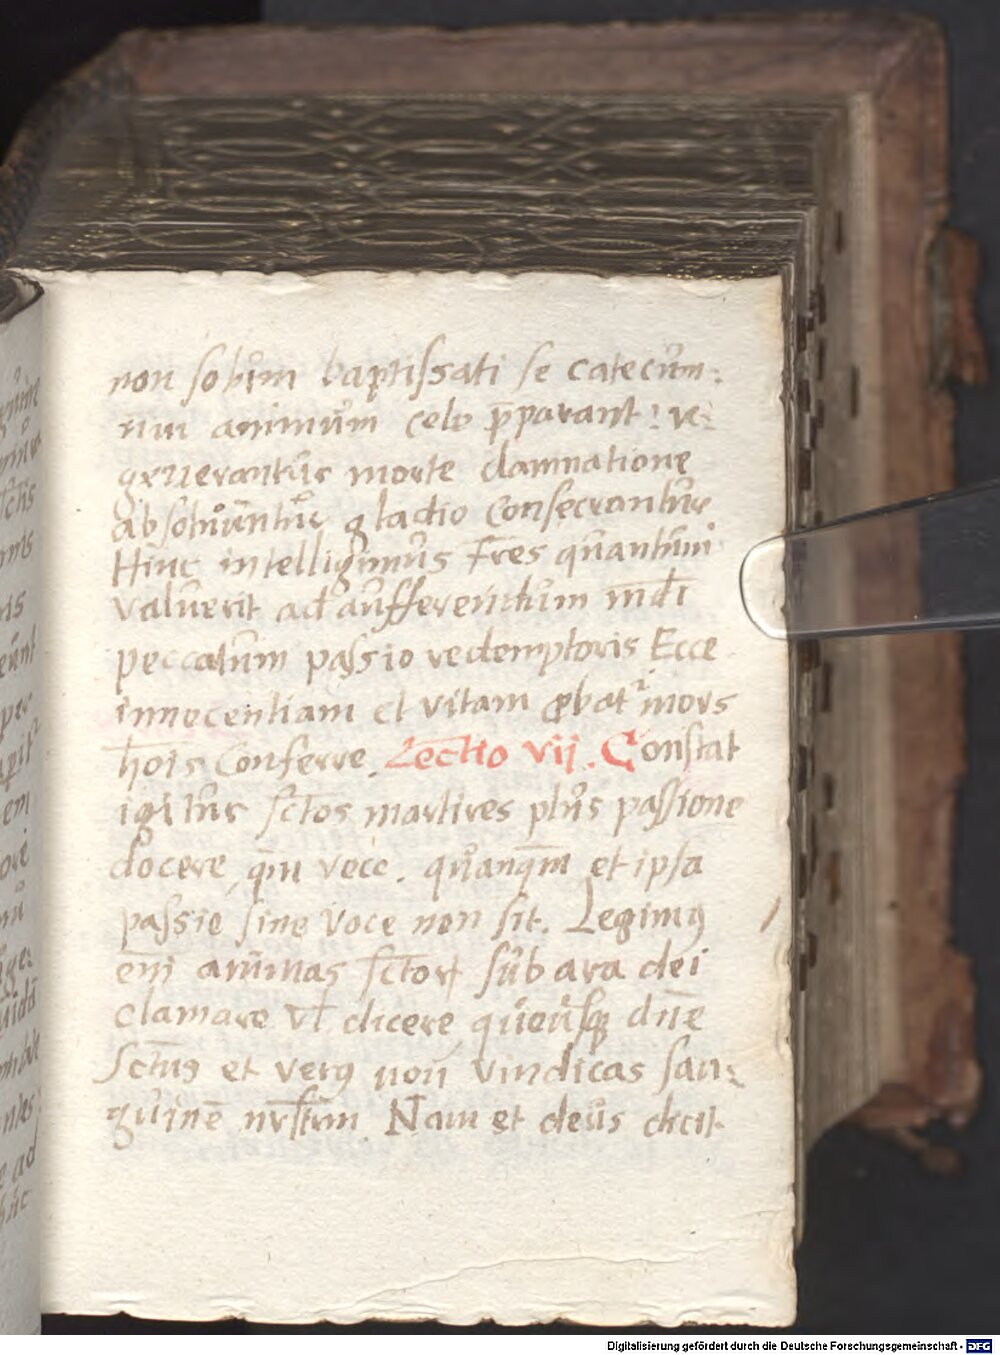 non solum baptissati se catecum:
nui animum celo p̄parant: re:
generantur morte damnatione
absoluuntur gladio consecrantur
Hinc intelligimus Fr̄es quantum
valuerit ad aufferendum mūdi
peccatum passio redemptoris Ecce
innocentiam et vitam ꝓbatʳ mors
ho̅is conferre. Lectio vij. Constat
igitur sc̄tos martires plus passione
docere, qm̄ voce. quanqm̄ et ipsa
passio sine voce non sit. Legimꝰ
eni animas sc̄torꝝ sub ara dei
clamare vł dicere quousqꝫ dn̄e
Sc̄tus et verꝰ non vindicas san:
guinē nr̄stum. Nam et deus dicit
Digitalisierung gefördert durch die Deutsche Forschungsgemeinschaft - DFG